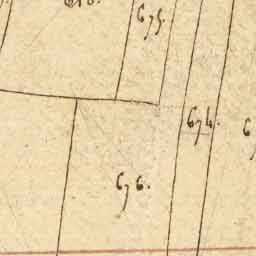 675.
674.
676.